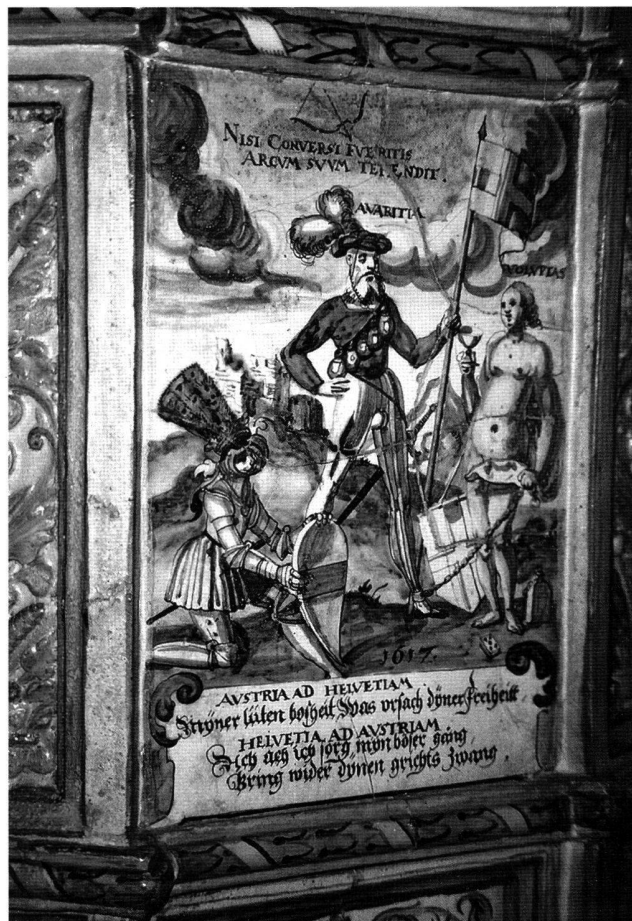 NISI CONVERSI FVERITIS
ARCVM SVVM TETENDIT.
AVARITIA
VOLVPTAS
1617.
AVSTRIA AD HELVETIAM
lüten bosheit Was vrsach döner freiheitt.
HELVETIA AD AVSTRIAM
Ach ich sorg, myn böser gang
Bring wider dynen grichts zwang.